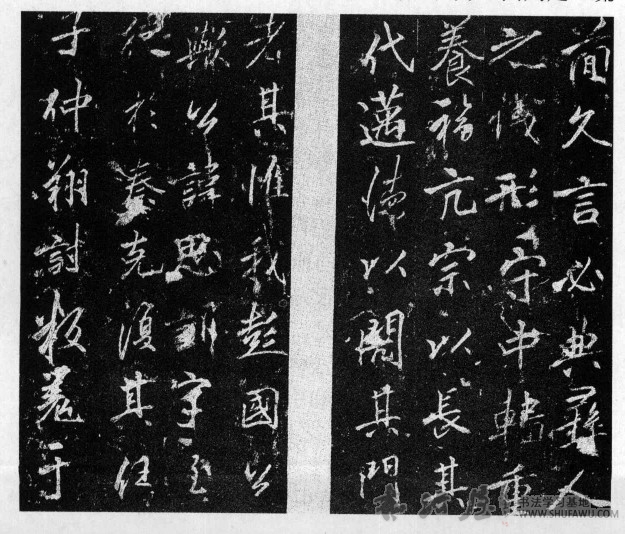 簡久言必典彝人
之儀形守中轉重
養福亢宗以長其
代邁德以闊其門
者其惟我彭國公
歟公諱思訓字至
徙於秦克復其任
子仲翔討叛羌于
书法学习基地
WWW.SHUFAWU.COM